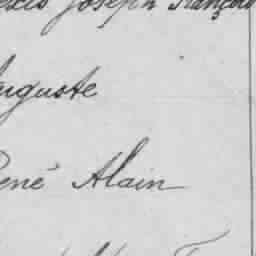 Joseph François
Auguste
René Alain